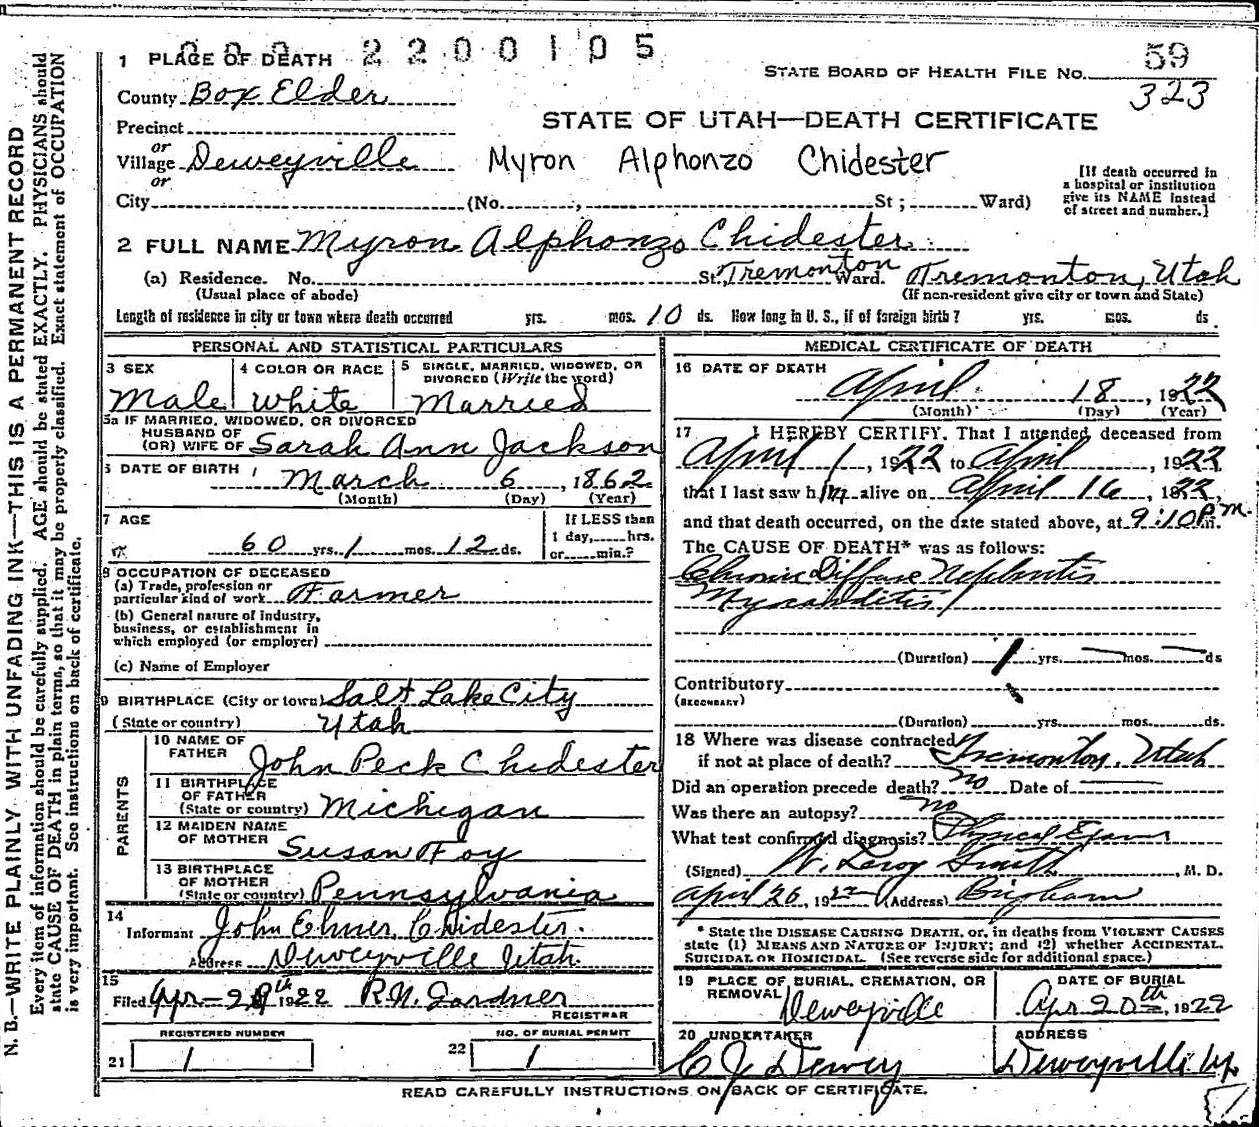 000 2200105
1 PLACE OF DEATH
STATE BOARD OF HEALTH FILE NO. 59
323
County Box Elder
STATE OF UTAH—DEATH CERTIFICATE
Precinct
or
Village Deweyville
Myron Alphonzo Chidester
or
City (No. , St ; Ward)
[If death occurred in
a hospital or institution
give its NAME instead
of street and number.]
2 FULL NAME Myron Alphonzo Chidester
(a) Residence. No. St., Tremonton Ward. Tremonton, Utah
(Usual place of abode) (If non-resident give city or town and State)
Length of residence in city or town where death occurred yrs. mos. 10 ds. How long in U. S., if of foreign birth ? yrs. mos. ds.
PERSONAL AND STATISTICAL PARTICULARS
3 SEX Male
4 COLOR OR RACE White
5 SINGLE, MARRIED, WIDOWED, OR
DIVORCED (Write the word)
Married
5a IF MARRIED, WIDOWED, OR DIVORCED
HUSBAND OF
(OR) WIFE OF Sarah Ann Jackson
6 DATE OF BIRTH March 6, 1862
(Month) (Day) (Year)
7 AGE
60 yrs. 1 mos. 12 ds.
If LESS than
1 day, hrs.
or min.?
8 OCCUPATION OF DECEASED
(a) Trade, profession or
particular kind of work Farmer
(b) General nature of industry,
business, or establishment in
which employed (or employer)
(c) Name of Employer
9 BIRTHPLACE (City or town) Salt Lake City
(State or country) Utah
PARENTS
10 NAME OF
FATHER John Peck Chidester
11 BIRTHPLACE
OF FATHER
(State or country) Michigan
12 MAIDEN NAME
OF MOTHER Susan Foy
13 BIRTHPLACE
OF MOTHER
(State or country) Pennsylvania
14
Informant John Elmer Chidester.
Address Deweyville Utah.
15
Filed Apr - th 1922 R.N. Gardner
REGISTRAR
REGISTERED NUMBER
21 1
NO. OF BURIAL PERMIT
22 1
MEDICAL CERTIFICATE OF DEATH
16 DATE OF DEATH
April 18, 1922
(Month) (Day) (Year)
17 I HEREBY CERTIFY, That I attended deceased from
April 1, 1922 to April , 1922
that I last saw him alive on April 16, 1922,
and that death occurred, on the date stated above, at 9:10 P.m.
The CAUSE OF DEATH* was as follows:
Chronic Diffuse Nephritis
Myocarditis
(Duration) 1 yrs. — mos. — ds
Contributory
(SECONDARY)
(Duration) yrs. mos. ds.
18 Where was disease contracted
if not at place of death? Tremonton, Utah
Did an operation precede death? no Date of
Was there an autopsy? no
What test confirmed diagnosis? Physical Exam
(Signed) W. Leroy Smith, M. D.
April 26, 1922 (Address) Bingham
* State the DISEASE CAUSING DEATH, or, in deaths from VIOLENT CAUSES
state (1) MEANS AND NATURE OF INJURY; and (2) whether ACCIDENTAL,
SUICIDAL OR HOMICIDAL. (See reverse side for additional space.)
19 PLACE OF BURIAL, CREMATION, OR
REMOVAL Deweyville
DATE OF BURIAL
Apr 20th, 1922
20 UNDERTAKER
C J Dewey
ADDRESS
Deweyville Ut.
READ CAREFULLY INSTRUCTIONS ON BACK OF CERTIFICATE.
N. B.—WRITE PLAINLY WITH UNFADING INK—THIS IS A PERMANENT RECORD
Every item of information should be carefully supplied. AGE should be stated EXACTLY. PHYSICIANS should
state CAUSE OF DEATH in plain terms, so that it may be properly classified. Exact statement of OCCUPATION
is very important. See instructions on back of certificate.